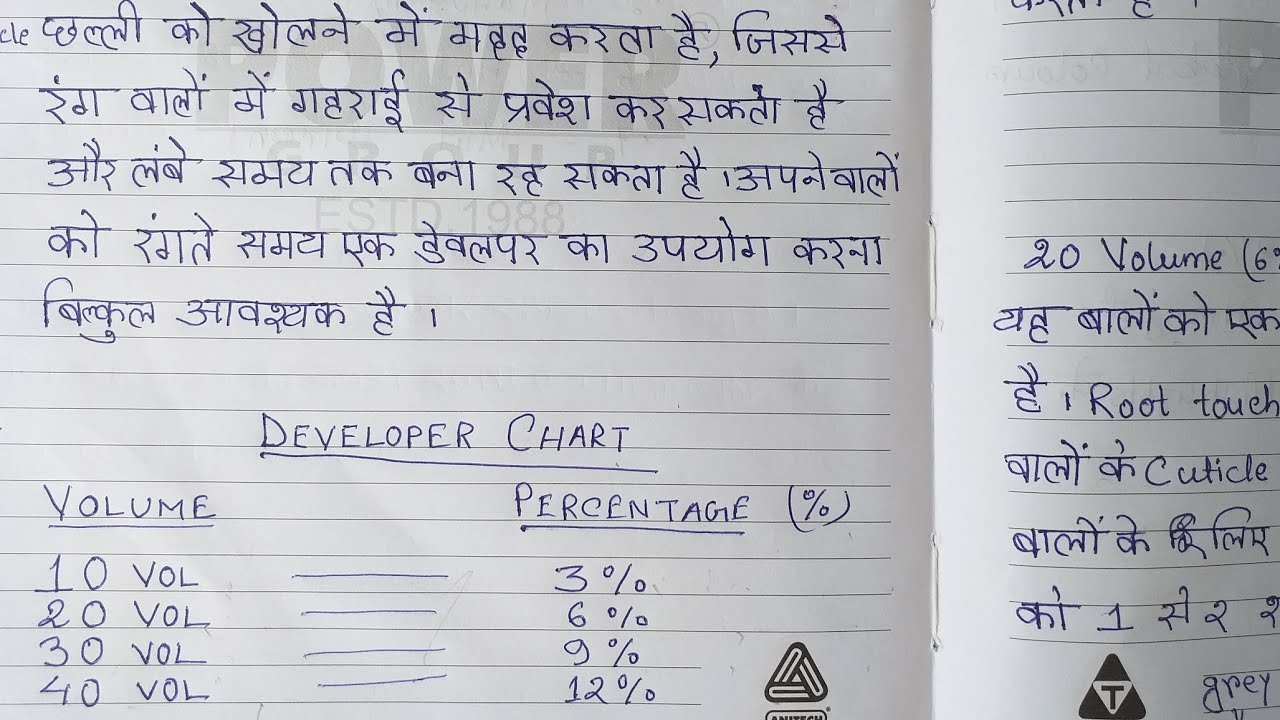 cle छल्ली को खोलने में मदद करता है, जिससे
रंग बालों में गहराई से प्रवेश कर सकता है
और लंबे समय तक बना रह सकता है । अपने बालों
को रंगते समय एक डेवलपर का उपयोग करना
बिल्कुल आवश्यक है ।
DEVELOPER CHART
VOLUME PERCENTAGE (%)
10 VOL 3%
20 VOL 6%
30 VOL 9%
40 VOL 12%
ANITECH
POWER
GROUP
ESTD. 1988
20 Volume (6%
यह बालों को एक
है । Root touch
बालों के Cuticle
बालों के लिए
को 1 से २
grey
T